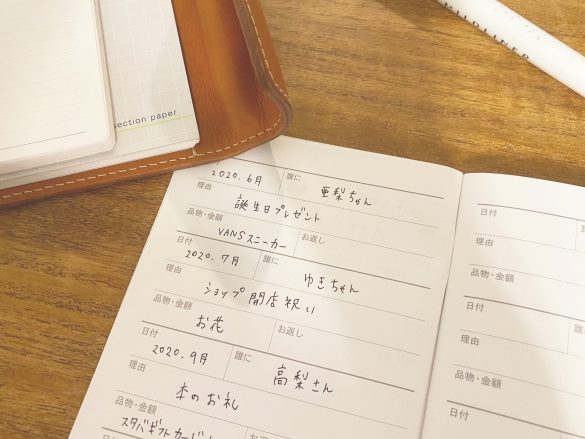 section paper
2020.6月 誰に 亜梨ちゃん
理由 誕生日プレゼント
品物・金額 VANSスニーカー お返し
日付 2020.7月 誰に ゆきちゃん
理由 ショップ開店祝い
品物・金額 お花 お返し
日付 2020.9月 誰に 高梨さん
理由 本のお礼
品物・金額 スタバギフトカード
日付
理由
品物・金額
日付 誰に
理由
品物・金額
日付